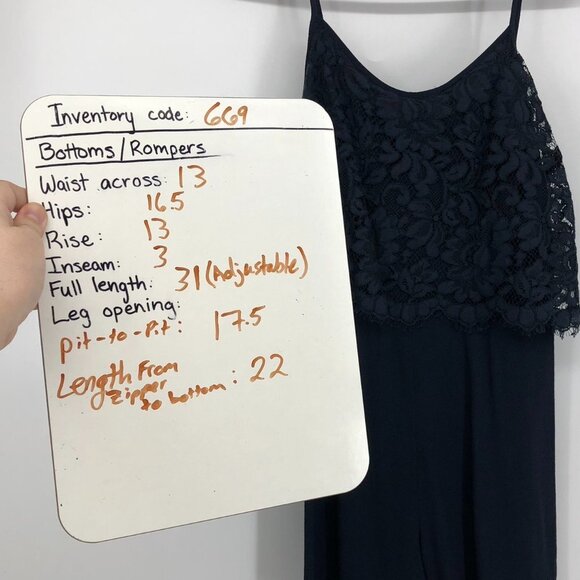 Inventory code: 669
Bottoms/Rompers
Waist across: 13
Hips: 16.5
Rise: 13
Inseam: 3
Full length: 31 (Adjustable)
Leg opening:
Pit-to-Pit: 17.5
Length From
Zipper
to bottom: 22